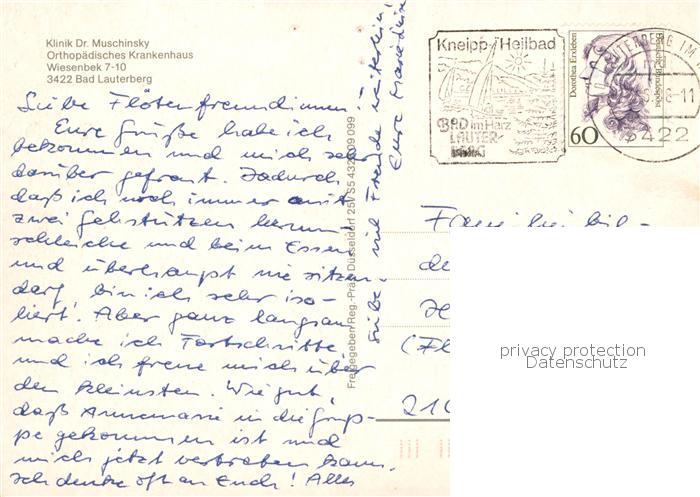 Klinik Dr. Muschinsky
Orthopädisches Krankenhaus
Wiesenbek 7-10
3422 Bad Lauterberg
Liebe Flötenfreundinnen!
Eure Grüße habe ich
bekommen und mich sehr
darüber gefreut. Dadurch
daß ich noch immer mit
zwei Gehstützen herum
schleiche und beim Essen
und überhaupt nie sitzen
darf, bin ich sehr iso-
liert! Aber ganz langsam
mache ich Fortschritte
und ich freue mich über
den kleinsten. Wie gut,
daß Annemarie in die Grup-
pe gekommen ist und
mich jetzt vertreten kann.
Ich denke oft an Euch! Alles
Liebe, viel Freude weiterhin!
Eure
Freigegeben Reg.-Präs. Düsseldorf 25 V S5 432 099 099
Kneipp-Heilbad
BAD im Harz
LAUTER-
BERG
Dorothea Erxleben
Deutsche Bundespost
60
LAUTERBERG IM
-11
3422
(Fl
210
privacy protection
Datenschutz